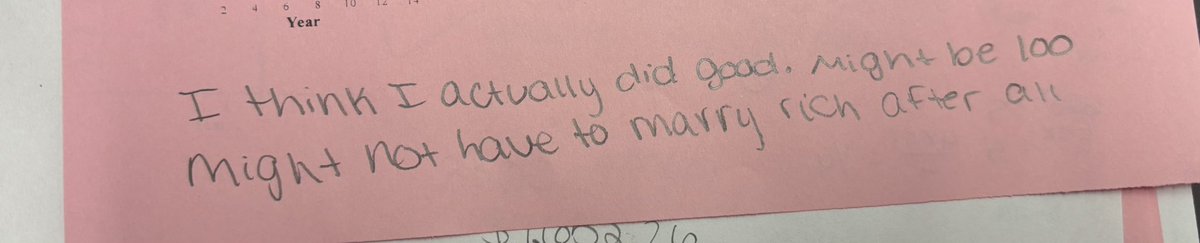 2 4 6 8 10 12 14
Year
I think I actually did good. Might be 100
Might not have to marry rich after all